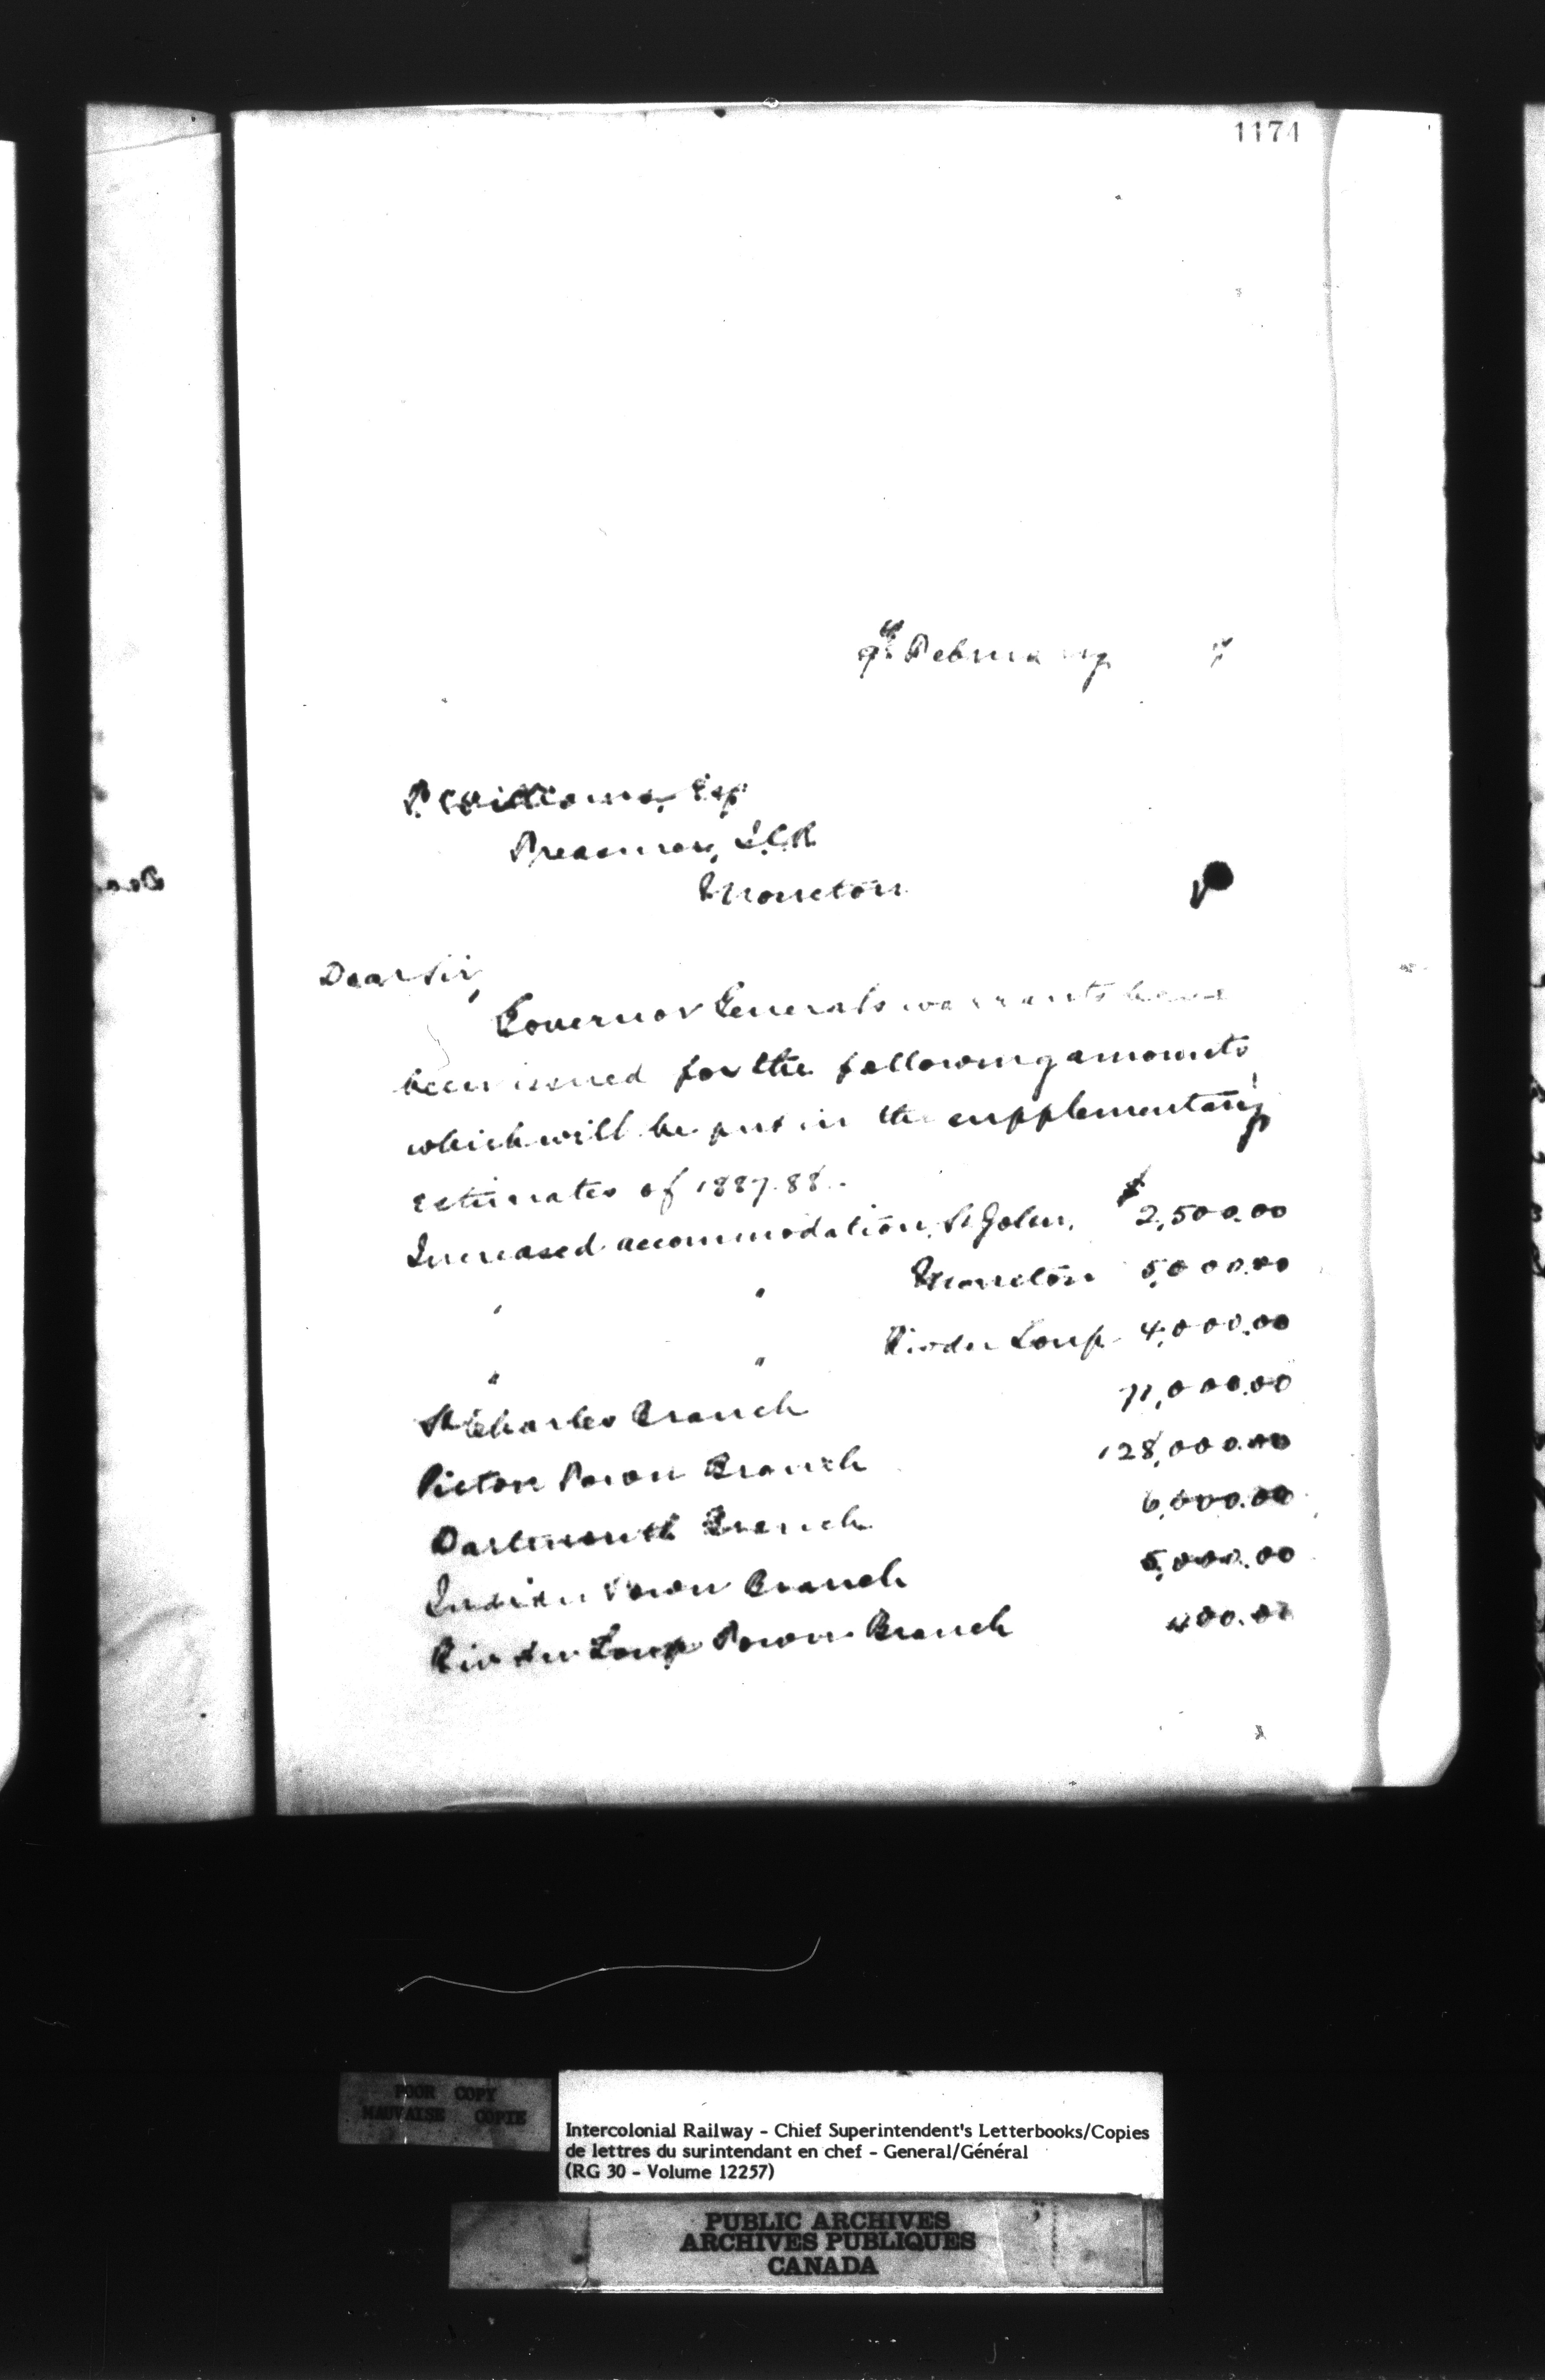 1174
9th February 7
Williams, Esq
Treasurer, I.C.R.
Moncton
Dear Sir,
Governor Generals warrants have
been issued for the following amounts
which will be put in the supplementary
estimates of 1887.88.
Increased accommodation, St John, $ 2,500.00
" " Moncton 5,000.00
" " Riv du Loup 4,000.00
St Charles Branch 71,000.00
Pictou Town Branch 128,000.00
Dartmouth Branch 6,000.00
Indian Town Branch 5,000.00
Riv du Loup Town Branch 400.00
POOR COPY
MAUVAISE COPIE
Intercolonial Railway - Chief Superintendent's Letterbooks/Copies
de lettres du surintendant en chef - General/Général
(RG 30 - Volume 12257)
PUBLIC ARCHIVES
ARCHIVES PUBLIQUES
CANADA